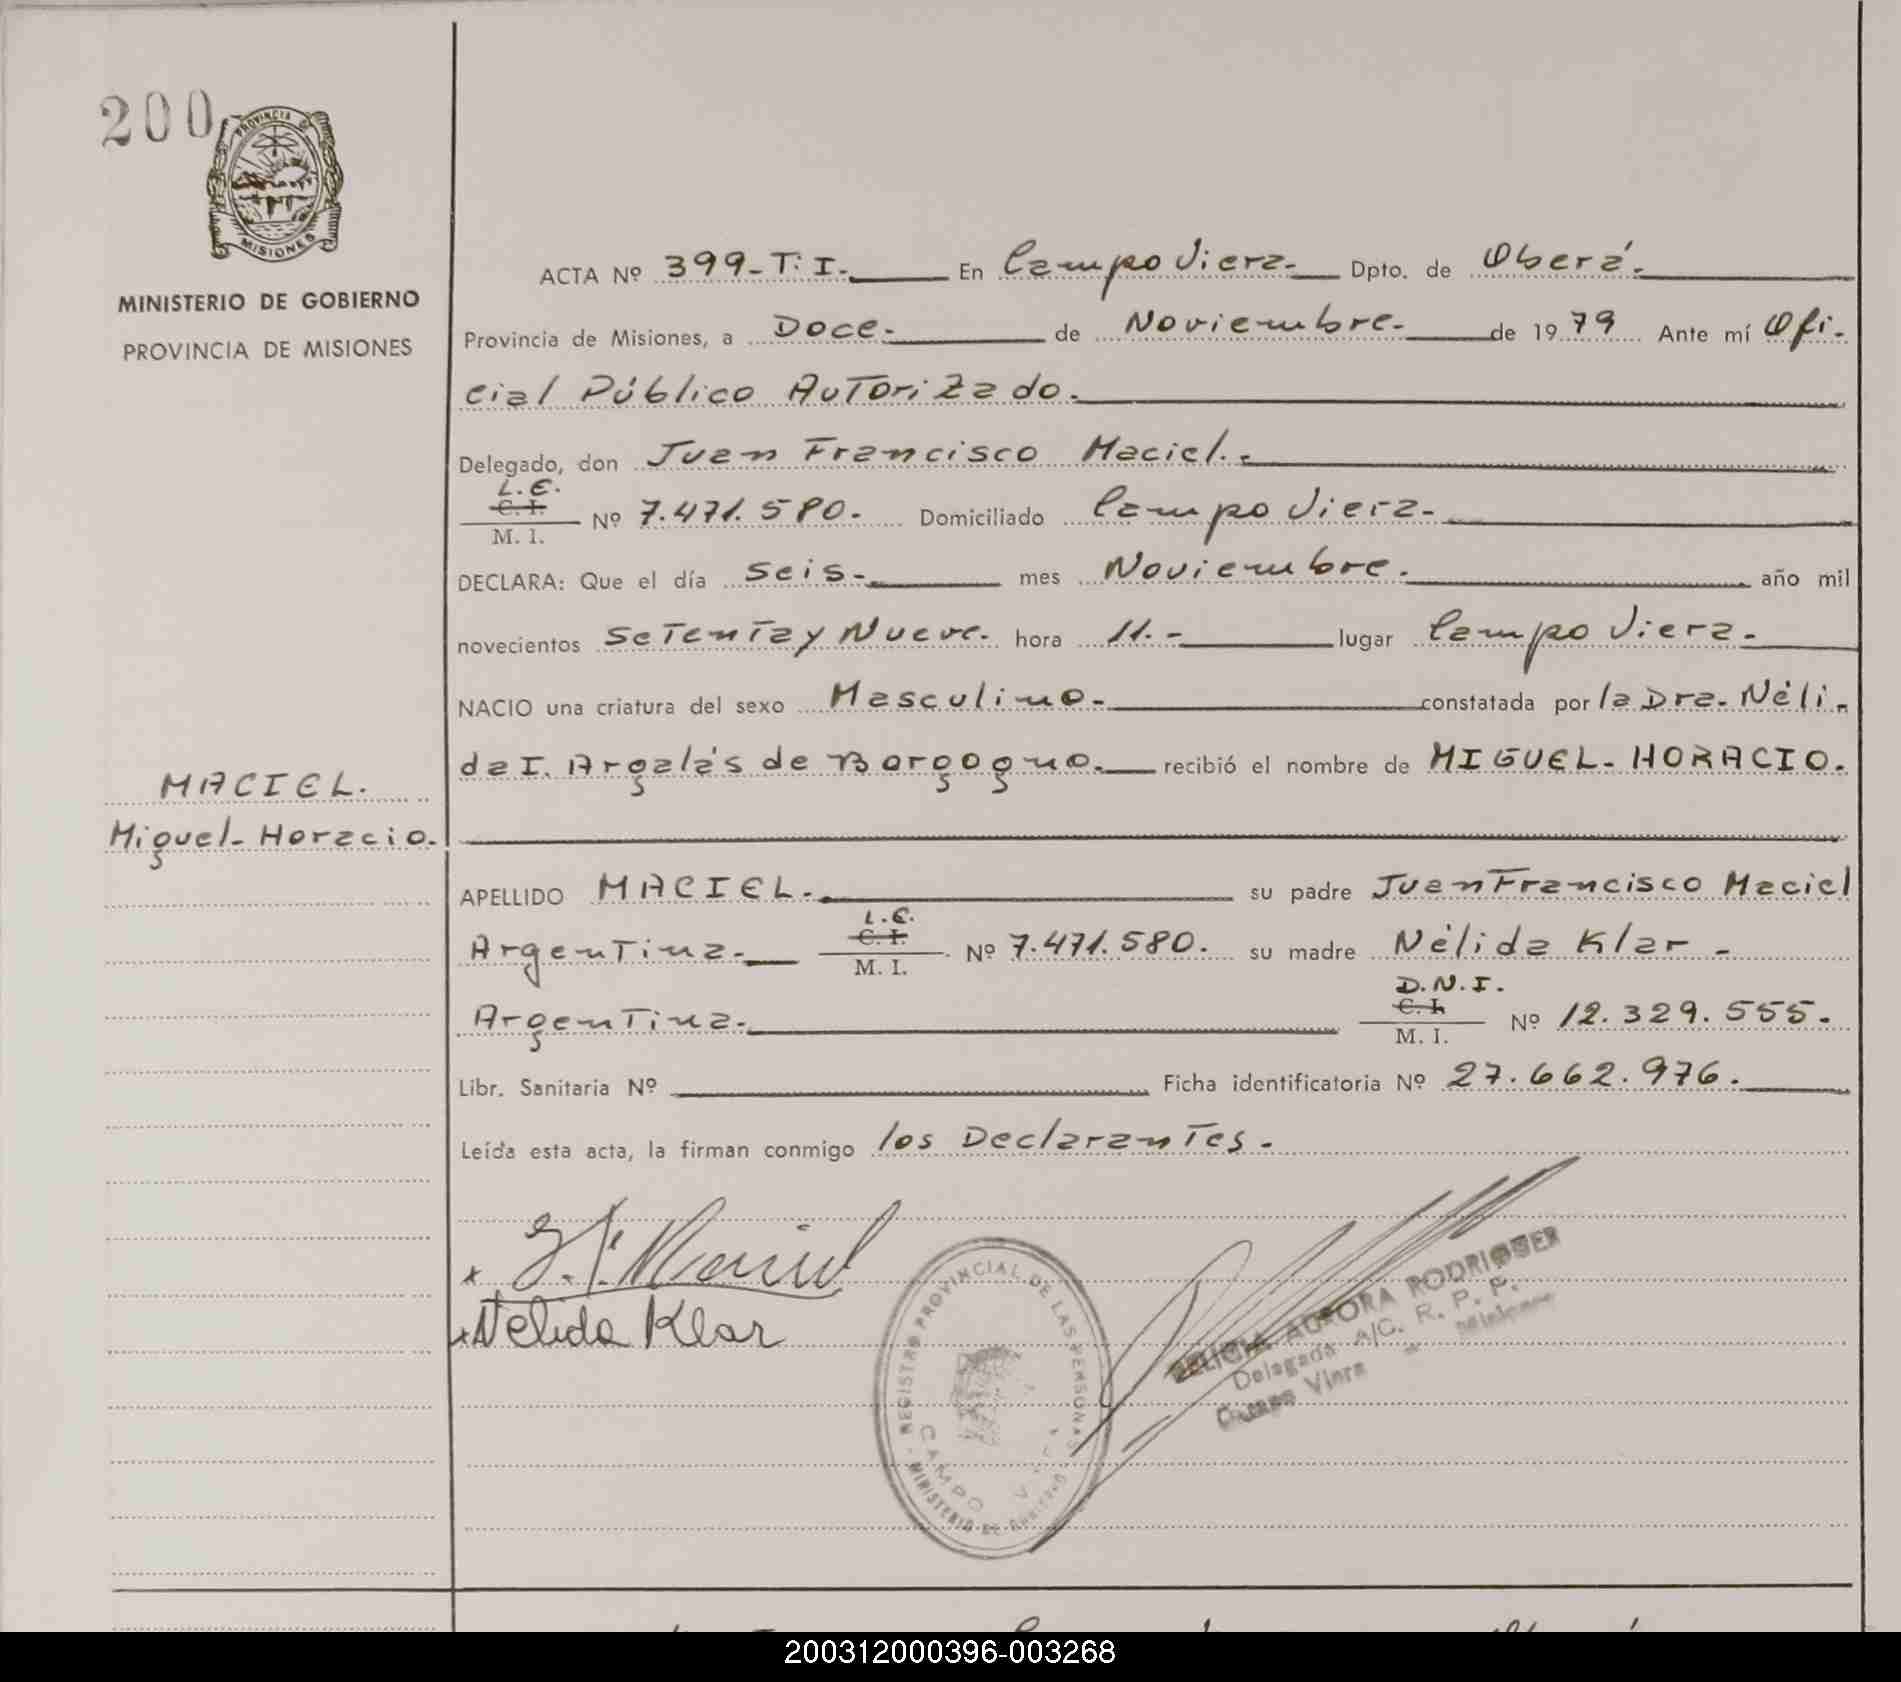 200
PROVINCIA DE
MISIONES
MINISTERIO DE GOBIERNO
PROVINCIA DE MISIONES
ACTA Nº 399-T.I. En Campo Viera. Dpto. de Oberá.
Provincia de Misiones, a Doce. de Noviembre. de 1979 Ante mí Ofi-
cial Público Autorizado.
Delegado, don Juan Francisco Maciel.
L.E.
C. I.
M. I. Nº 7.471.580. Domiciliado Campo Viera.
DECLARA: Que el día seis. mes Noviembre. año mil
novecientos Setenta y Nueve. hora 11.- lugar Campo Viera.
NACIO una criatura del sexo Masculino. constatada por la Dra. Néli-
da I. Argalás de Borgogno. recibió el nombre de MIGUEL-HORACIO.
MACIEL.
Miguel-Horacio.
APELLIDO MACIEL. su padre Juan Francisco Maciel
L.E.
C. I.
Argentina. M. I. Nº 7.471.580. su madre Nélida Klar -
D.N.I.
C. I.
Argentina. M. I. Nº 12.329.555.
Libr. Sanitaria Nº Ficha identificatoria Nº 27.662.976.
Leída esta acta, la firman conmigo los Declarantes.
x J.F. Maciel
x Nelida Klar
REGISTRO PROVINCIAL DE LAS PERSONAS
MINISTERIO DE GOBIERNO
CAMPO
AURORA RODRIGUEZ
Delegada A/C. R. P. P.
Campo Viera - Misiones
200312000396-003268